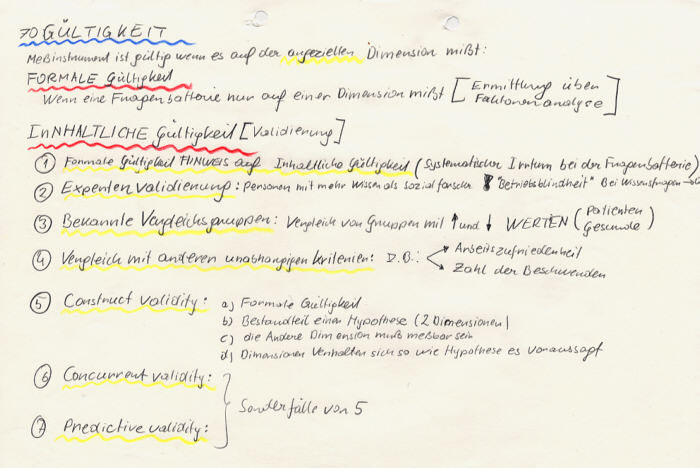 70 GÜLTIGKEIT
Meßinstrument ist gültig wenn es auf der angeziellen Dimension mißt:
FORMALE Gültigkeit
Wenn eine Fragenbatterie nur auf einer Dimension mißt [Ermittlung über
Faktorenanalyse]
InNHALTLICHE Gültigkeit [Validierung]
① Formale Gültigkeit HINWEIS auf Inhaltliche Gültigkeit (Systematischer Irrtum bei der Fragenbatterie)
② Expertenvalidierung: Personen mit mehr Wissen als Sozialforscher "Betriebsblindheit" Bei Wissensfragen
③ Bekannte Vergleichsgruppen: Vergleich von Gruppen mit ↑ und ↓ WERTEN (Patienten
Gesunde)
④ Vergleich mit anderen unabhängigen Kriterien: Z.B.: Arbeitszufriedenheit
Zahl der Beschwerden
⑤ Construct validity: a) Formale Gültigkeit
b) Bestandteil einer Hypothese (2 Dimensionen)
c) die Andere Dimension muß meßbar sein
d) Dimensionen Verhalten sich so wie Hypothese es voraussagt
⑥ Concurrent validity:
Sonderfälle von 5
⑦ Predictive validity: